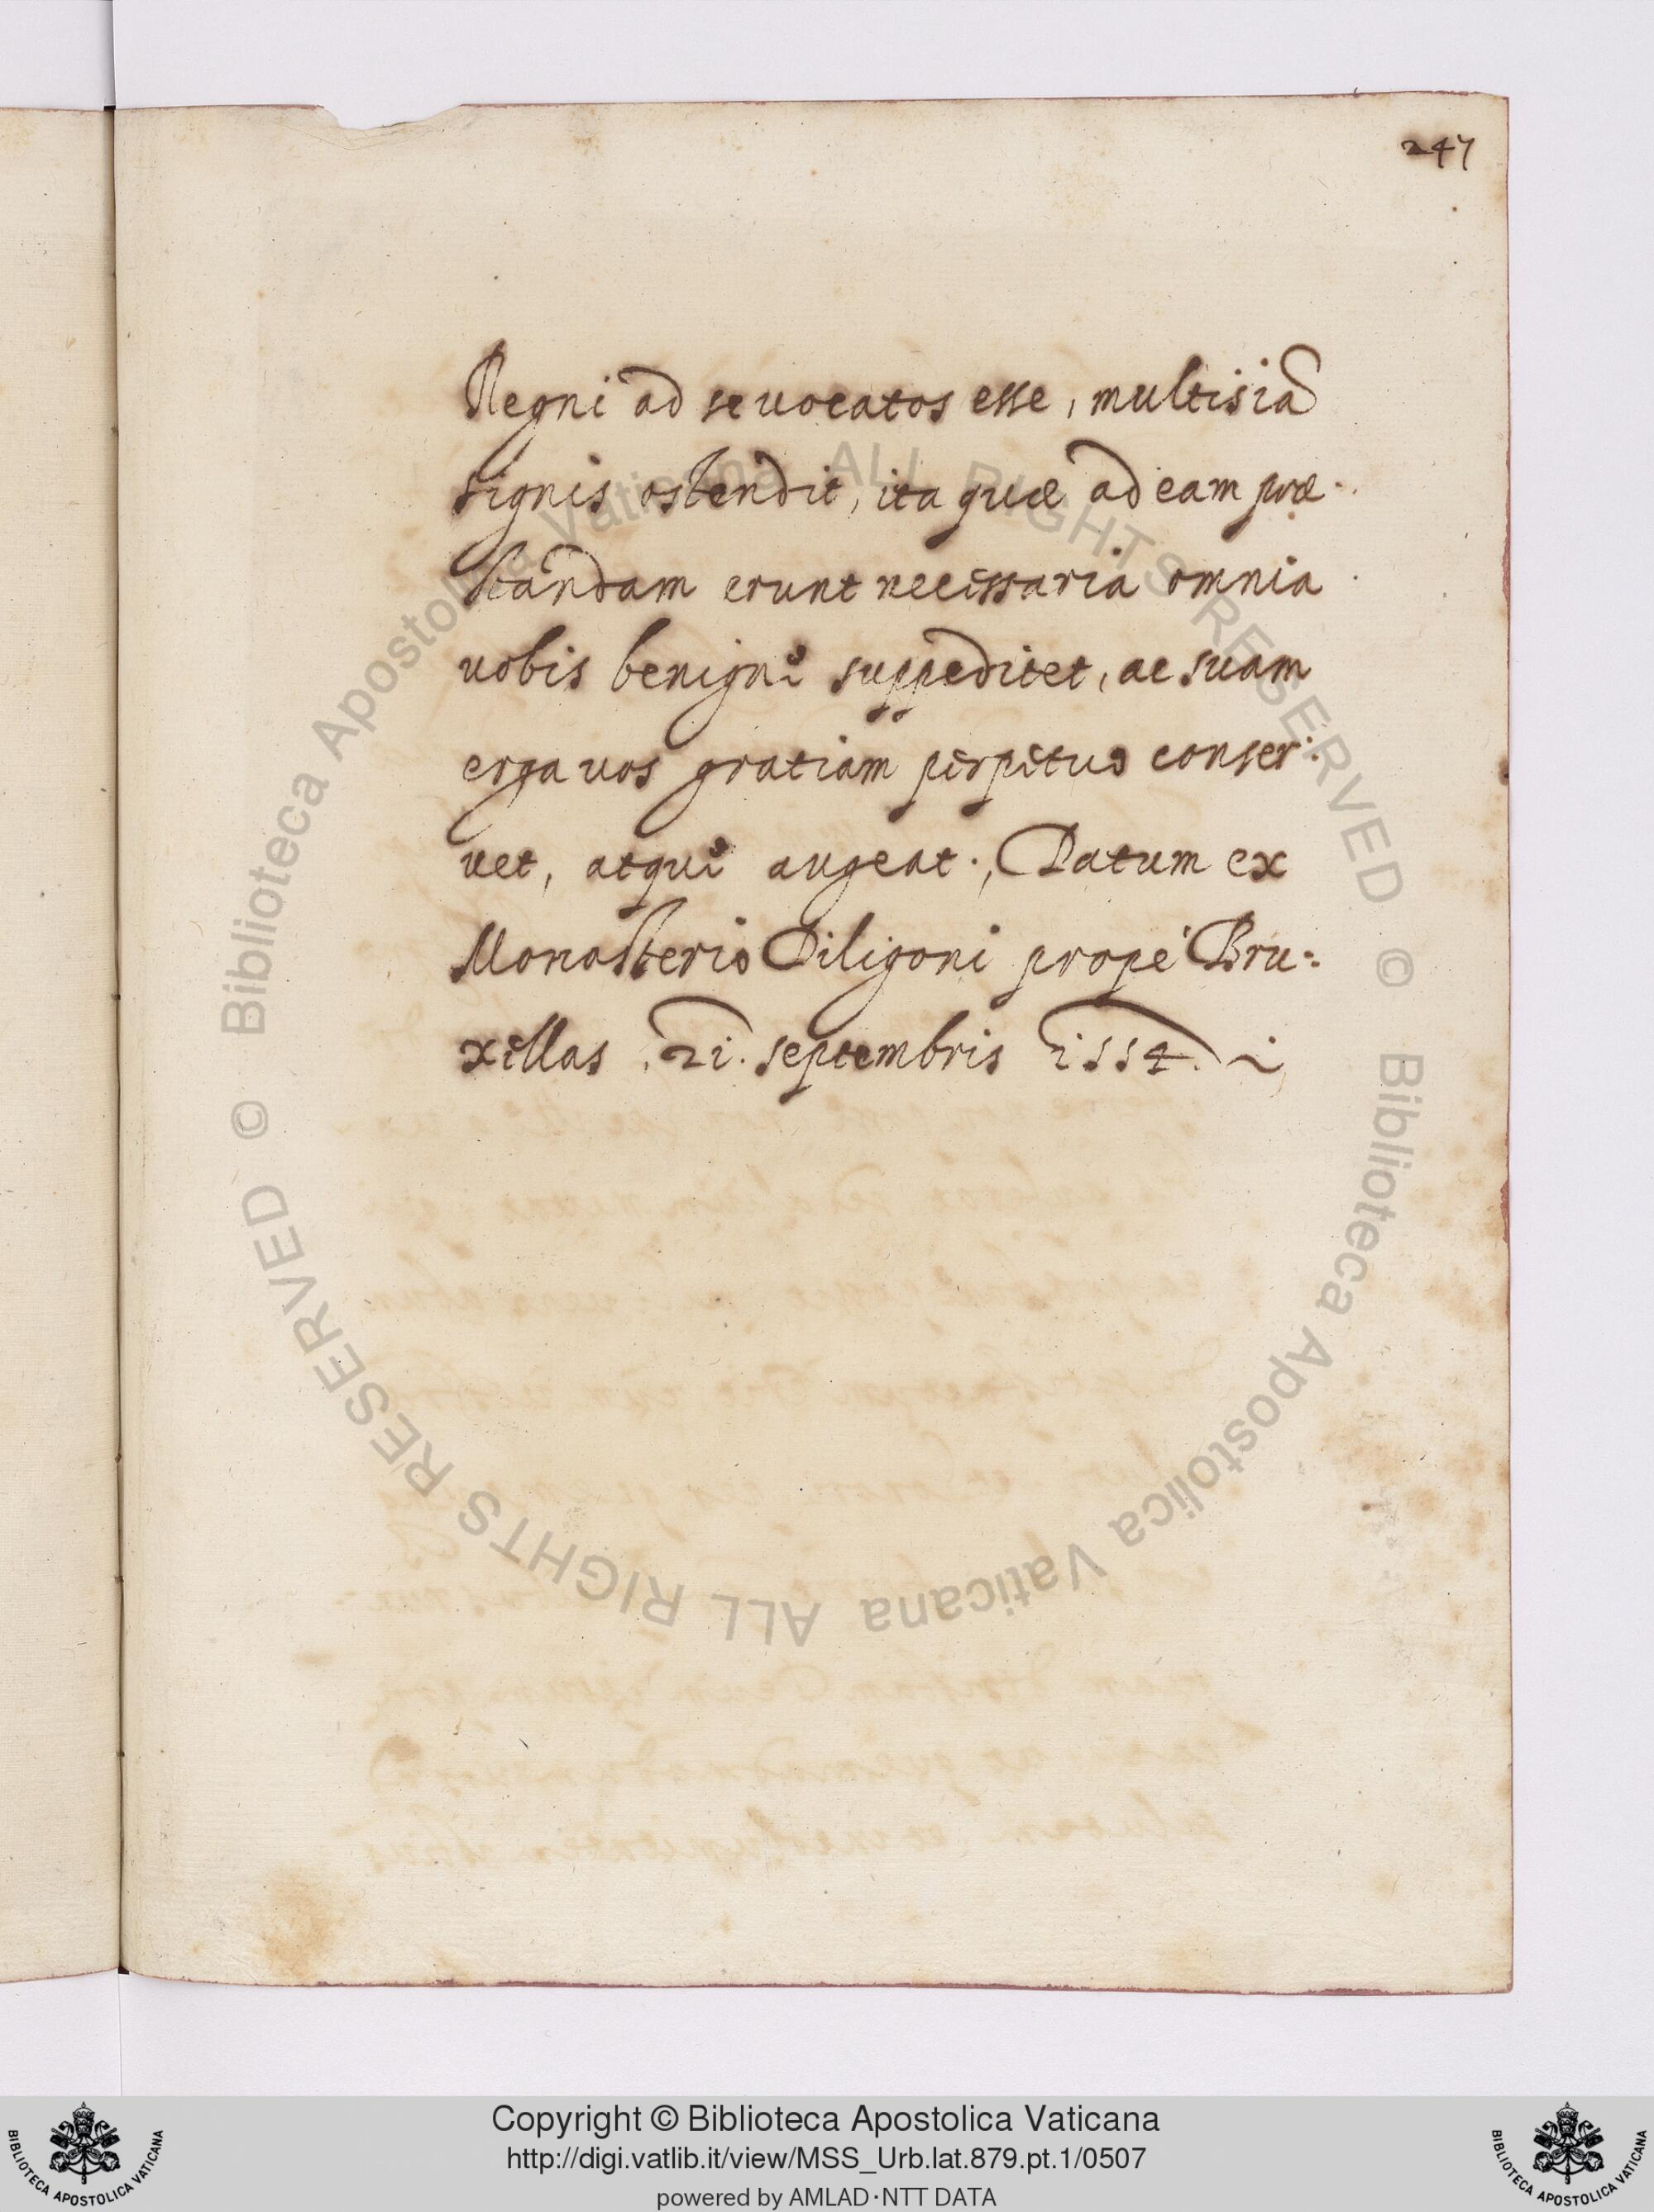 247
Regni ad se uocatos esse, multis iã
signis ostendit, ita quæ ad eam præ-
standam erunt necessaria omnia
uobis benignè suppeditet, ac suam
erga uos gratiam perpetuo conser-
uet, atque augeat. Datum ex
Monasterio Diligoni propè Bru=
xellas .21. septembris 1554.
© Biblioteca Apostolica Vaticana ALL RIGHTS RESERVED © Biblioteca Apostolica Vaticana ALL RIGHTS RESERVED
BIBLIOTECA APOSTOLICA VATICANA
Copyright © Biblioteca Apostolica Vaticana
http://digi.vatlib.it/view/MSS_Urb.lat.879.pt.1/0507
powered by AMLAD·NTT DATA
BIBLIOTECA APOSTOLICA VATICANA